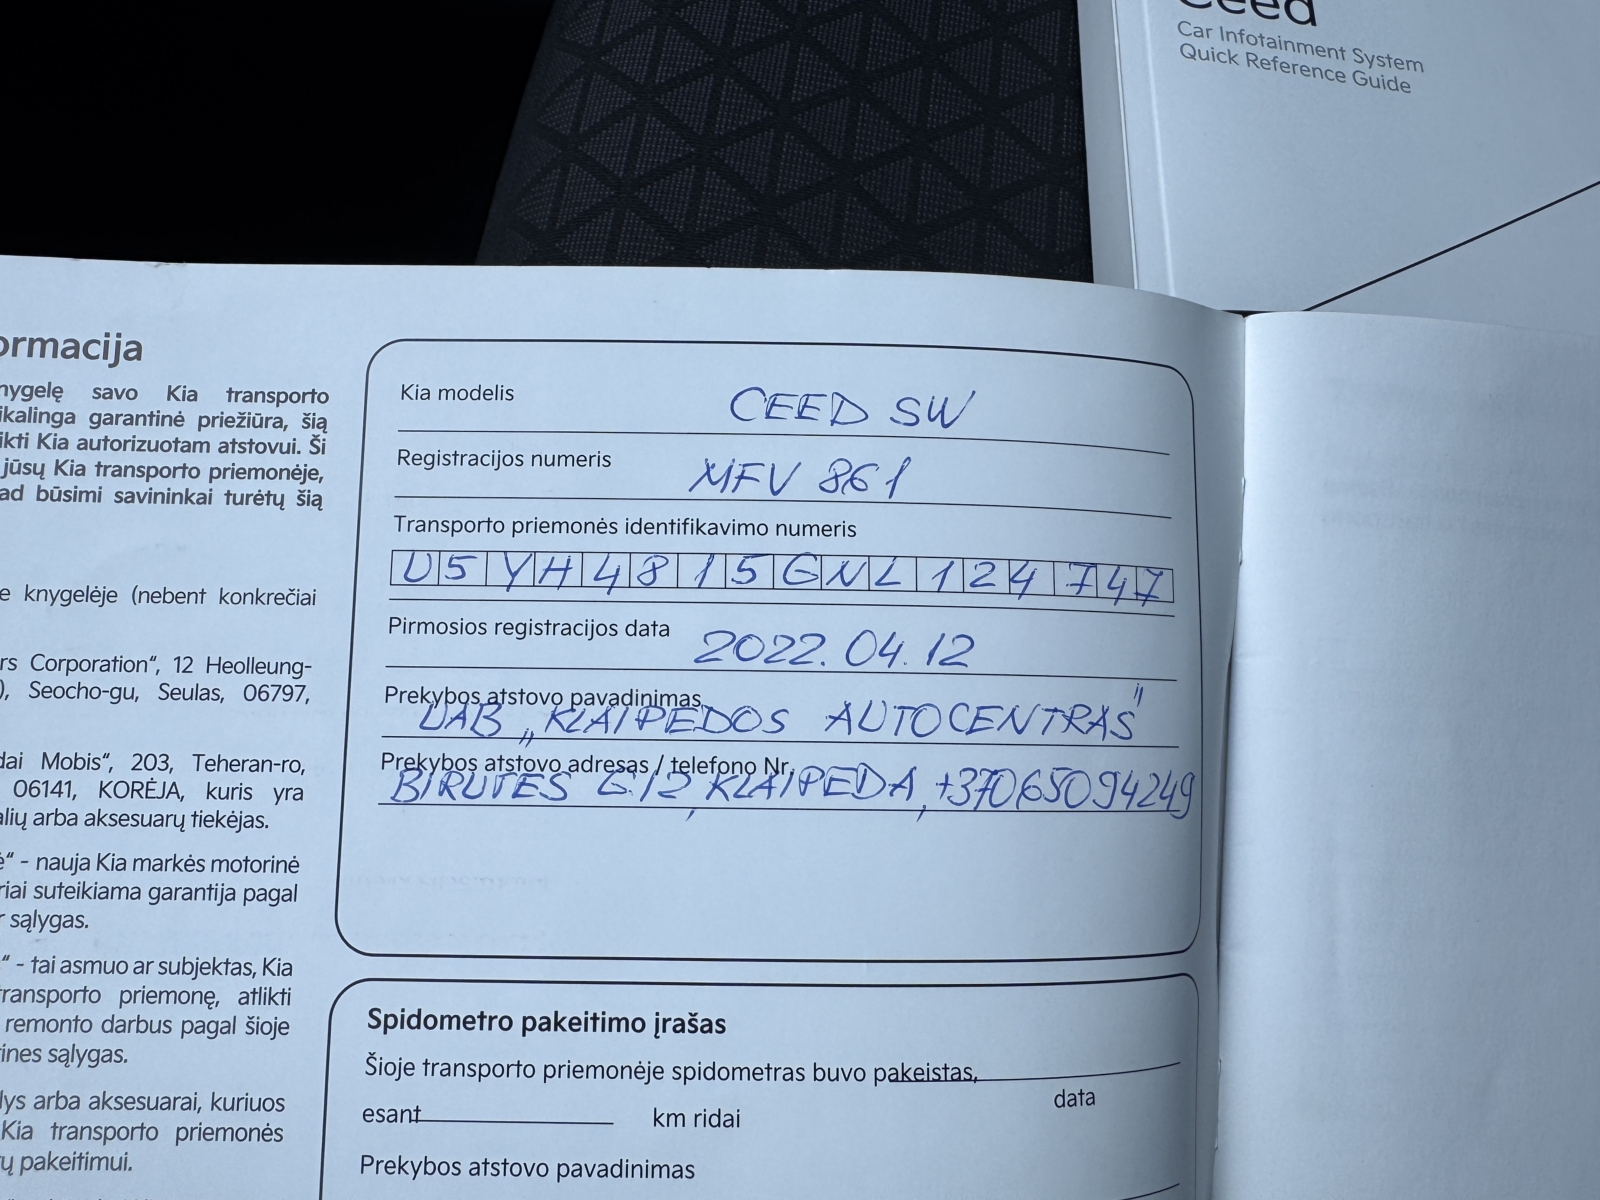 Ceed
Car Infotainment System
Quick Reference Guide
ormacija
nygelę savo Kia transporto
ikalinga garantinė priežiūra, šią
ikti Kia autorizuotam atstovui. Ši
jūsų Kia transporto priemonėje,
ad būsimi savininkai turėtų šią
e knygelėje (nebent konkrečiai
rs Corporation“, 12 Heolleung-
), Seocho-gu, Seulas, 06797,
dai Mobis“, 203, Teheran-ro,
06141, KORĖJA, kuris yra
alių arba aksesuarų tiekėjas.
ė“ - nauja Kia markės motorinė
riai suteikiama garantija pagal
r sąlygas.
“ - tai asmuo ar subjektas, Kia
transporto priemonę, atlikti
remonto darbus pagal šioje
ines sąlygas.
lys arba aksesuarai, kuriuos
Kia transporto priemonės
ų pakeitimui.
Kia modelis CEED SW
Registracijos numeris MFV 861
Transporto priemonės identifikavimo numeris
U5YH4815GNL124747
Pirmosios registracijos data 2022.04.12
Prekybos atstovo pavadinimas
UAB „KLAIPĖDOS AUTOCENTRAS"
Prekybos atstovo adresas / telefono Nr.
BIRUTĖS G.12, KLAIPĖDA, +37065094249
Spidometro pakeitimo įrašas
Šioje transporto priemonėje spidometras buvo pakeistas,
data
esant km ridai
Prekybos atstovo pavadinimas